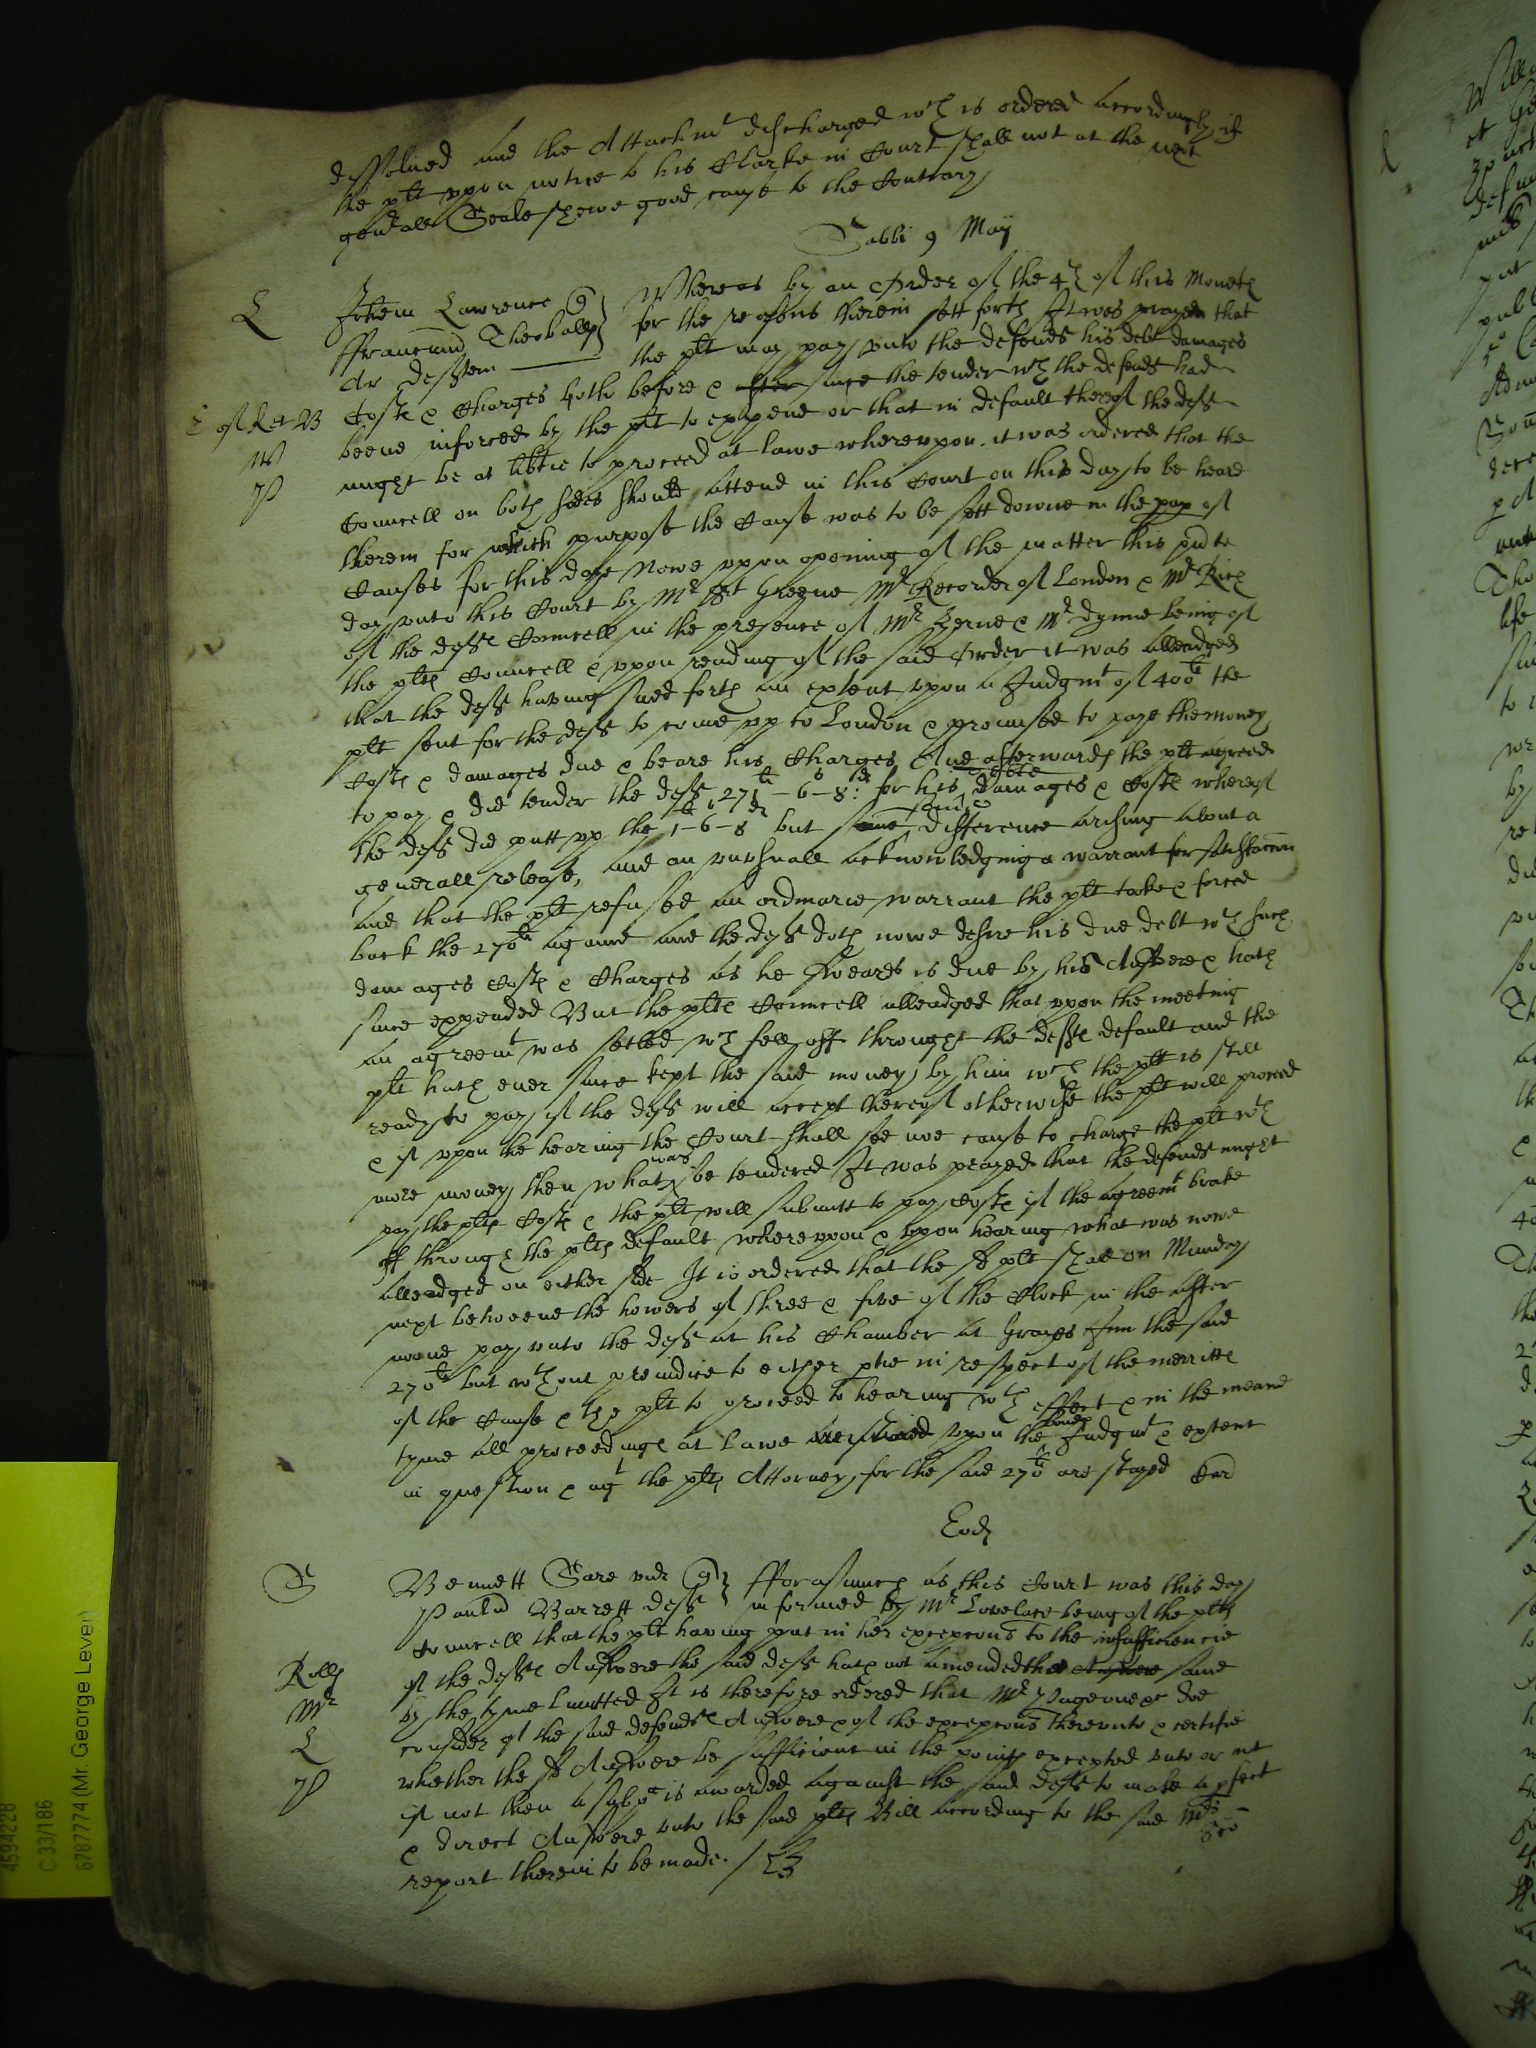 dissolued and the Attachmt discharged wch is ordered accordingly if
the plt vpon notice to his Clarke in Court shall not at the next
genrall Seale shewe good cause to the Contrary
Sabbi 9 Maij
L
Lawrence
Whereas by an Order of the 4th of this Moneth
ffranciscum Theobalds
for the reasons therein sett forth It was prayed that
Ar defftem
the plt may pay vnto the defendt his debt damages
Costs & Charges both before & after since the tender wch the defendt had
beene inforced by the plt to expend or that in default thereof the deft
W
might be at libtie to proceed at lawe wherevpon it was ordered that the
P
Councell on both sides should attend in this Court on this day to be heard
therein for which purpose the Cause was to be sett downe in the pap of
Causes for this daye Nowe vpon opening of the matter this pnte
day vnto this Court by Mr Sert Greene Mr Recorder of London & Mr Rich
of the defts Councell in the presence of Mr Herne & Mr being of
the plts Councell & vpon reading of the said Order it was alleadged
that the deft having sued forth an extent vpon a Judgmt of 400li the
plt sent for the deft to come vp to London & promised to paye the money
Costs & damages due & beare his Charges And afterwards the plt agreed
to pay & did tender the deft 271li-6s-8d: for his debte damages & Costs whereof
the deft did putt vp the 1li-6s-8d but some difference arising about a
generall release, and an vnusuall acknowledging a warrant for satisfaccon
and that the plt refused an ordinarie warrant the plt tooke & forced
back the 270li againe and the deft doth nowe desire his due debt wth such
damages Costs & Charges as he sweares is due by his Answere & hath
since expended But the plts Councell alleadged that vpon the meeting
an agreemt was setled wch fell off through the defts default and the
plt hath ever since kept the said money by him wch the plt is still
ready to pay if the deft will accept thereof otherwise the plt will proceed
& if vpon the hearing the Court shall see noe cause to charge the plt wth
more money then what was be tendered It was prayed that the defendt might
pay the plts Costs & the plt will submitt to pay Costs if the agreemt brake
off through the plts default wherevpon & vpon hearing what was nowe
alleadged on either side It is ordered that the sd plt shall on Munday
next betweene the howers of three & five of the Clock in the after
noone pay vnto the deft at his Chamber at Grayes Inn the said
270li but wthout preiudice to either ptie in respect of the merritts
of the Cause & the plt to proceed to hearing wth effect & in the meane
tyme all proceedings at lawe vpon the bond Judgmt & extent
in question & agt the plts Attorney for the said 270li are stayed
Eod
S
Bennett Sare vid
fforasmuch as this Court was this day
Barrett deft
informed by Mr Lovelace being of the plts
Councell that the plt having put in her excepcons to the insufficiencie
Rolls
of the defts Answere the said deft hath not amended the Answere same
Mr
by the tyme limitted It is therefore ordered that Mr Page one &c doe
L
consider of the said defendts Answere & of the excepcons therevnto & certifie
P
whether the sd Answere be sufficient in the points excepted vnto or not
if not then a subpa is awarded against the said deft to make a pfect
& direct Answere vnto the said plts Bill according to the said Mrs
report therein to be made./
4594228
C 33/186
6787774 (Mr. George Lever)